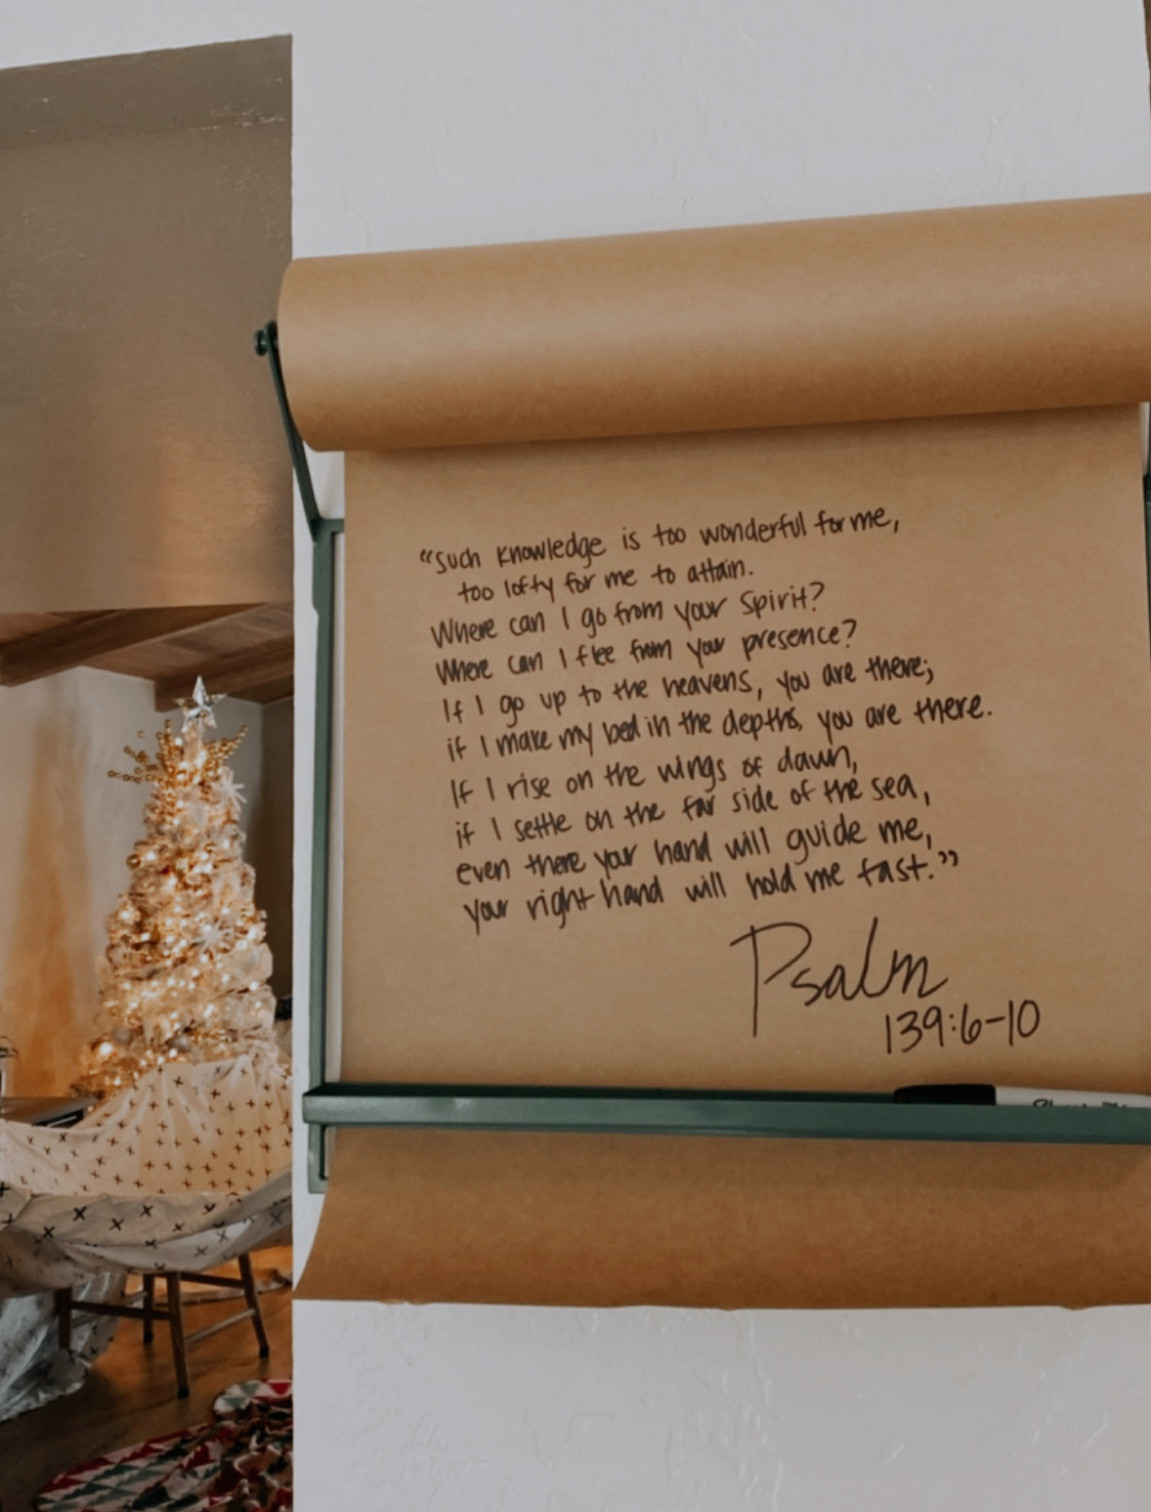 “Such knowledge is too wonderful for me,
too lofty for me to attain.
Where can I go from your Spirit?
Where can I flee from your presence?
If I go up to the heavens, you are there;
if I make my bed in the depths, you are there.
If I rise on the wings of dawn,
if I settle on the far side of the sea,
even there your hand will guide me,
your right hand will hold me fast.”
Psalm
139:6-10